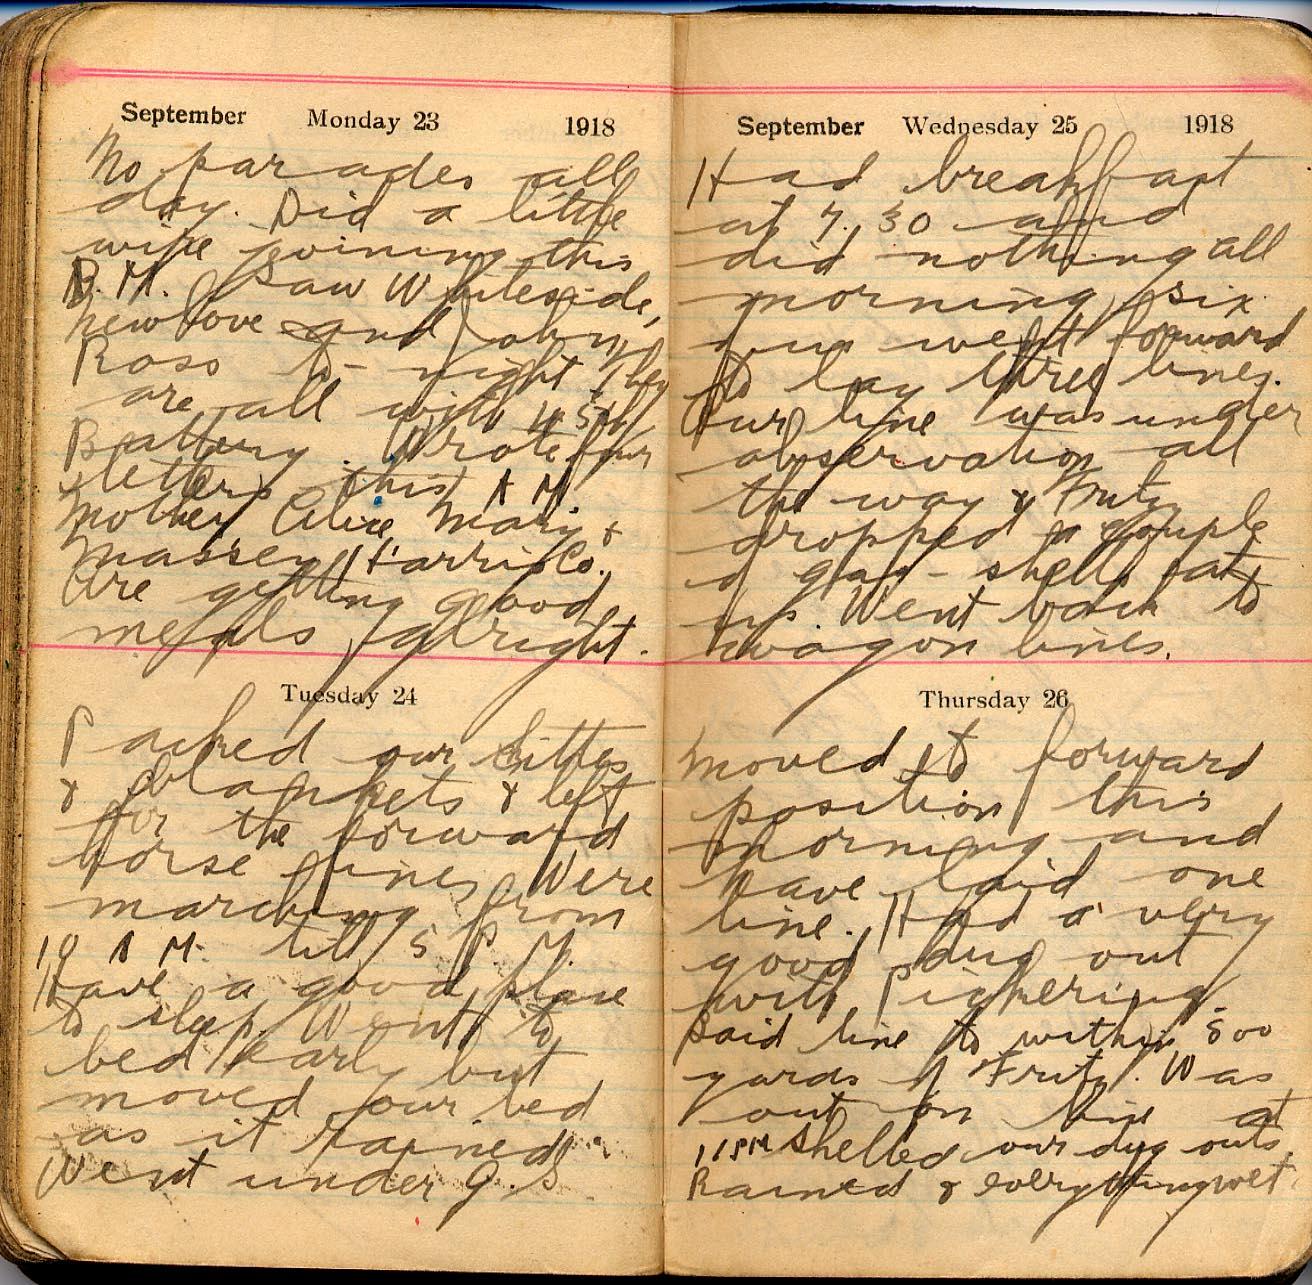 September Monday 23 1918
No parades all
day. Did a little
wire joining this
P.M. Saw Whiteside,
Newlove and John
Ross to-night they
are all with 45th
Battery. Wrote four
letters this A M
Mother, Alice, Mary &
Massey Harris Co.
Are getting good
meals alright.
Tuesday 24
Packed our kitties
& blankets & left
for the forward
horse lines Were
marching from
10 A M. till 5 P. M.
Have a good place
to sleep. Went to
bed early but
moved our bed
as it rained
Went under G. S
September Wednesday 25 1918
Had breakfast
at 7.30 and
did nothing all
morning, six
went forward
to lay three lines.
Our line was under
observation all
the way & Fritz
dropped a couple
of gas-shells at
us. Went back to
wagon lines.
Thursday 26
Moved to forward
position this
morning and
have laid one
line. Had a very
good dug out
with Pickering.
Laid line to within 500
yards of Fritz. Was
out on line at
11 PM shelled our dug outs
Rained & everything wet